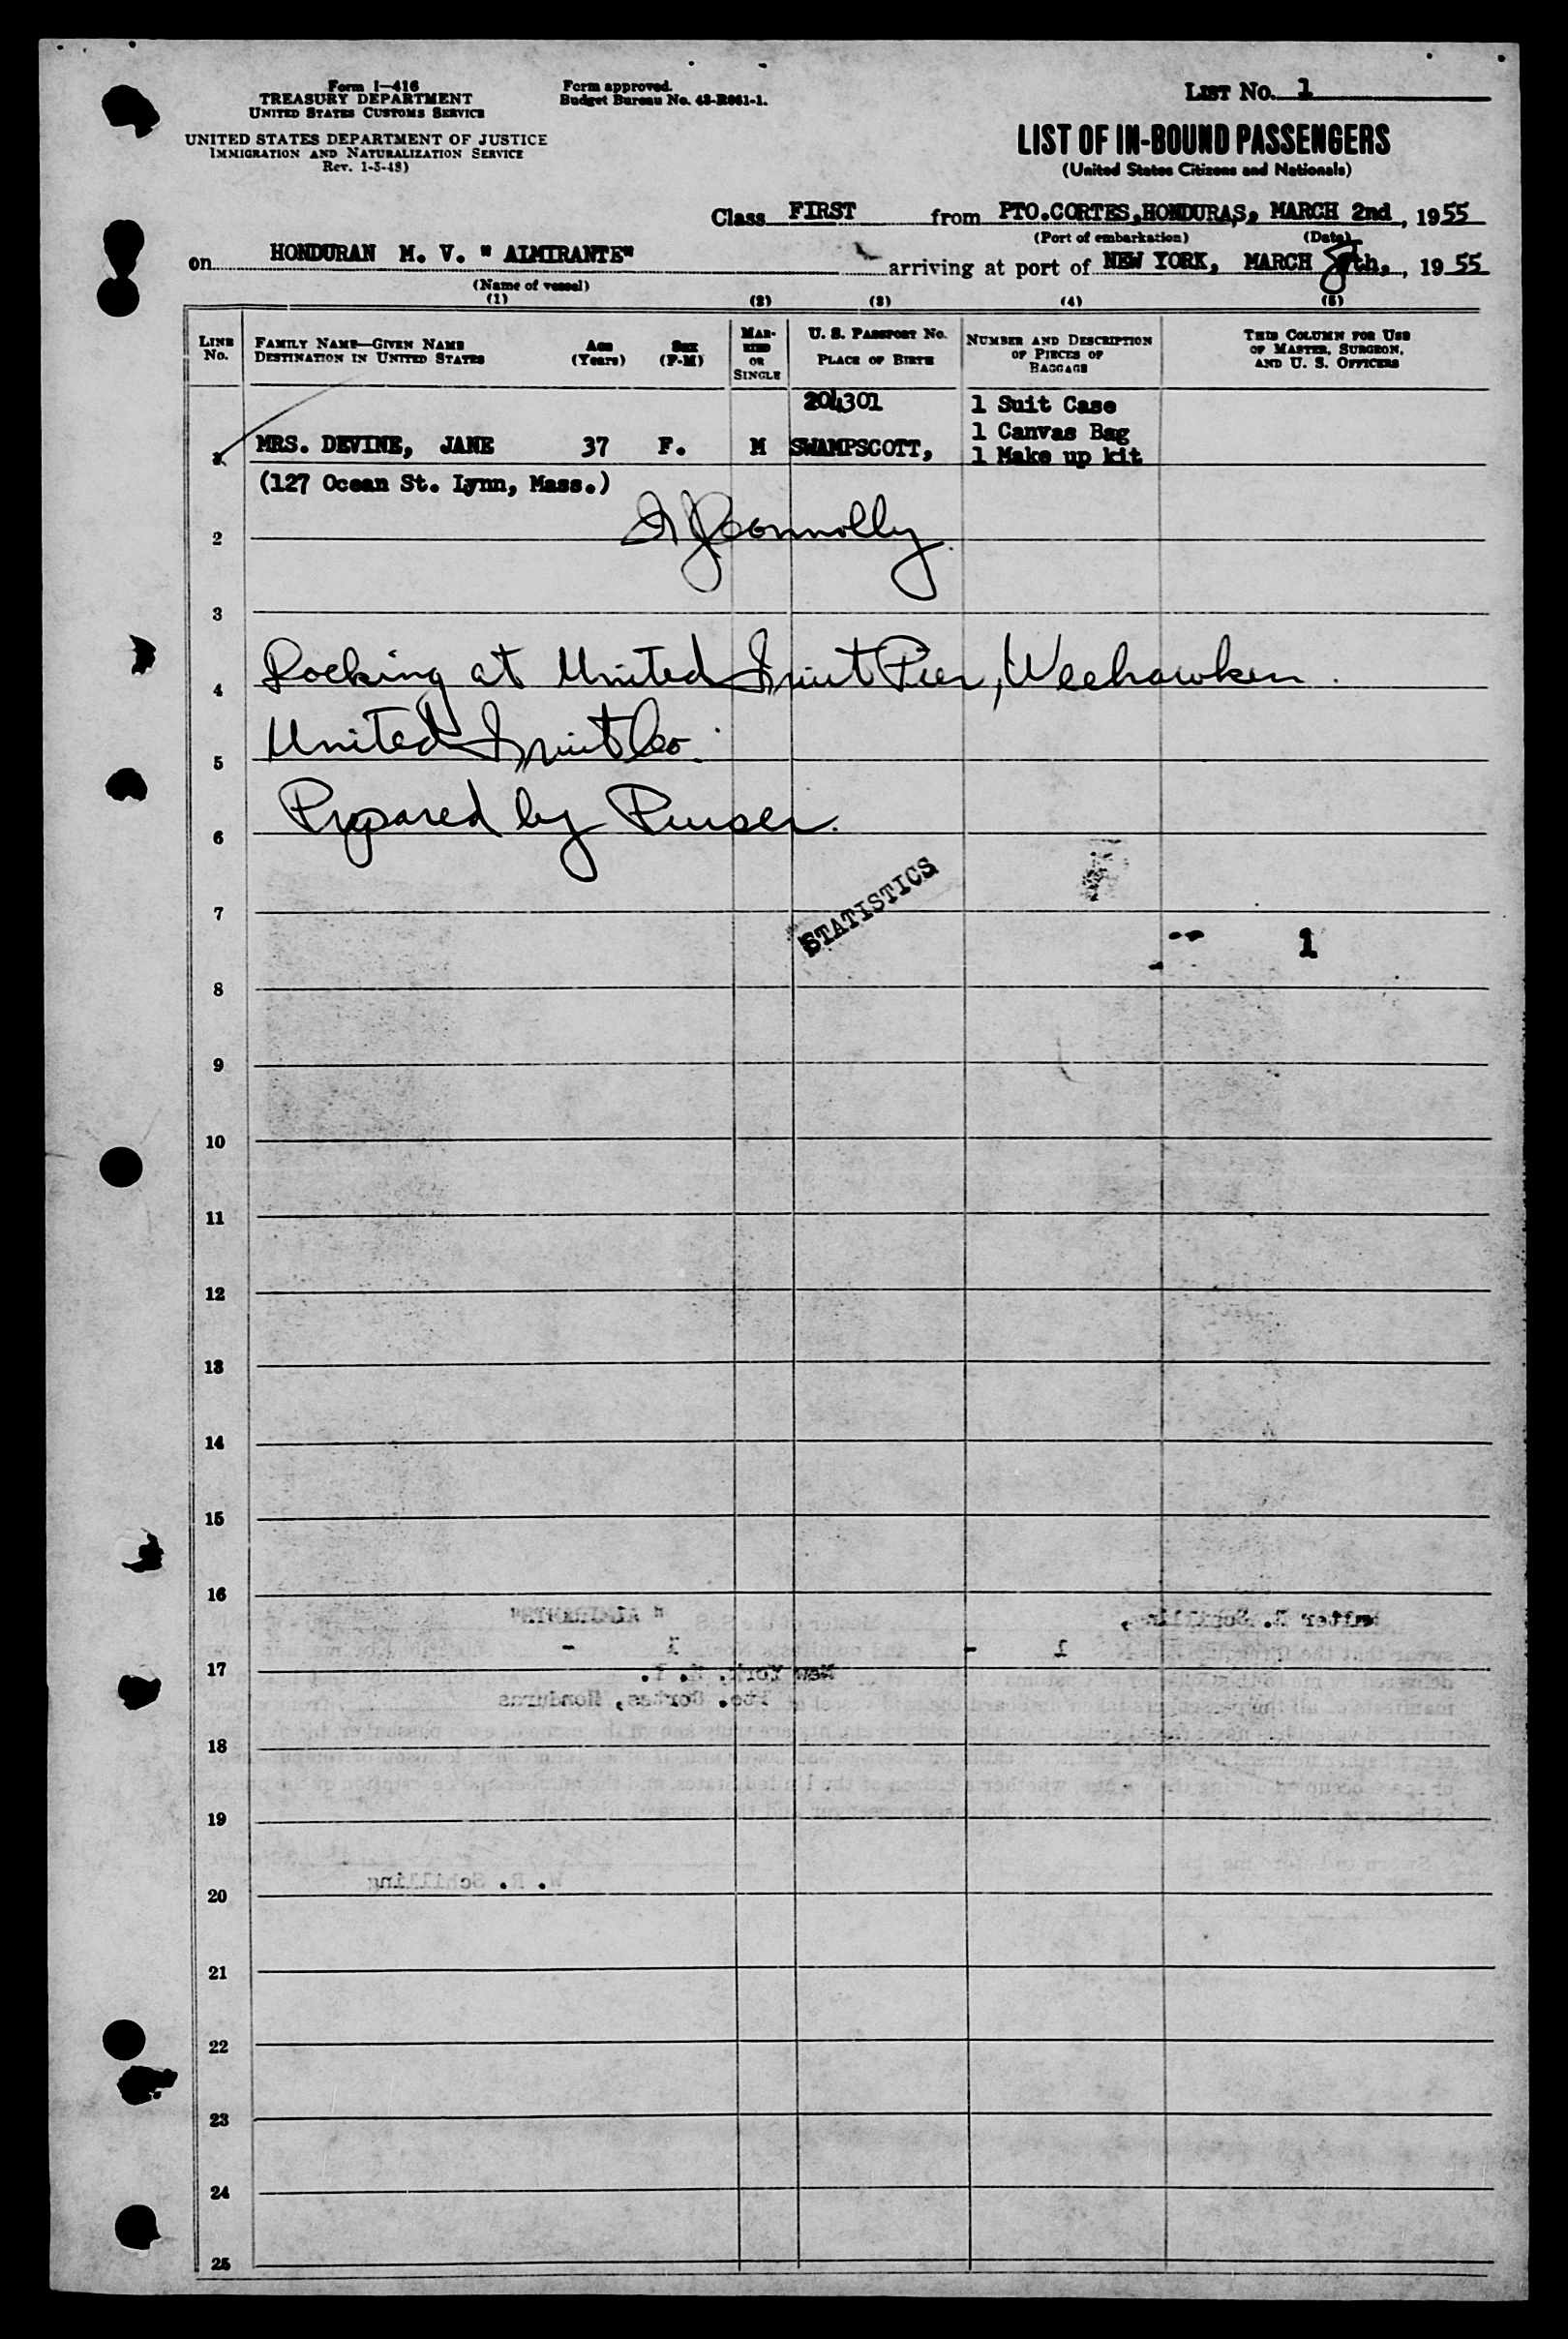 Form I—416
TREASURY DEPARTMENT
UNITED STATES CUSTOMS SERVICE
UNITED STATES DEPARTMENT OF JUSTICE
IMMIGRATION AND NATURALIZATION SERVICE
Rev. 1-5-48)
Form approved.
Budget Bureau No. 43-R061-1.
LIST No. 1
LIST OF IN-BOUND PASSENGERS
(United States Citizens and Nationals)
Class FIRST from PTO.CORTES,HONDURAS, MARCH 2nd, 1955
(Port of embarkation) (Date)
on HONDURAN M. V. " ALMIRANTE" arriving at port of NEW YORK, MARCH 8th, , 1955
(Name of vessel)
(1) (2) (3) (4) (5)
LINE No. FAMILY NAME—GIVEN NAME DESTINATION IN UNITED STATES AGE (Years) SEX (F-M) MARRIED OR SINGLE U. S. PASSPORT No. PLACE OF BIRTH NUMBER AND DESCRIPTION OF PIECES OF BAGGAGE THIS COLUMN FOR USE OF MASTER, SURGEON, AND U. S. OFFICERS
204301 1 Suit Case
1 Canvas Bag
1 MRS. DEVINE, JANE 37 F. M SWAMPSCOTT, 1 Make up kit
(127 Ocean St. Lynn, Mass.)
Connolly
2
3
4 Docking at United Fruit Pier, Weehawken.
5 United Fruit Co.
6 Prepared by Purser.
STATISTICS
7
1
8
9
10
11
12
13
14
15
16
Walter R. Schilling, " ALMIRANTE"
1 - 1 -
17 New York, N. Y.
Pto. Cortes, Honduras
18
19
W. R. Schilling
20
21
22
23
24
25